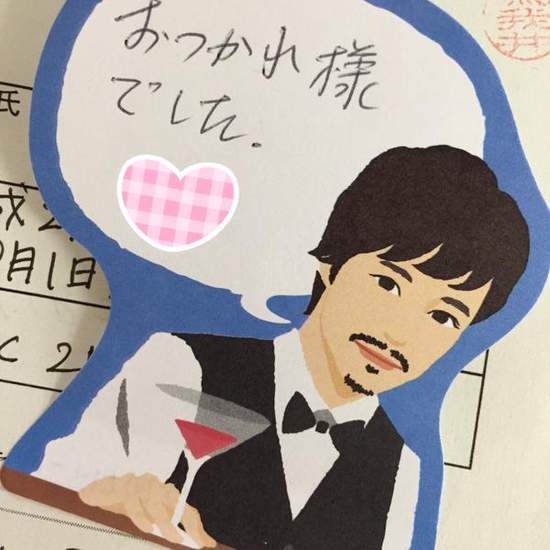 おつかれ様
でした.
氏
成2
9月1日
C 2